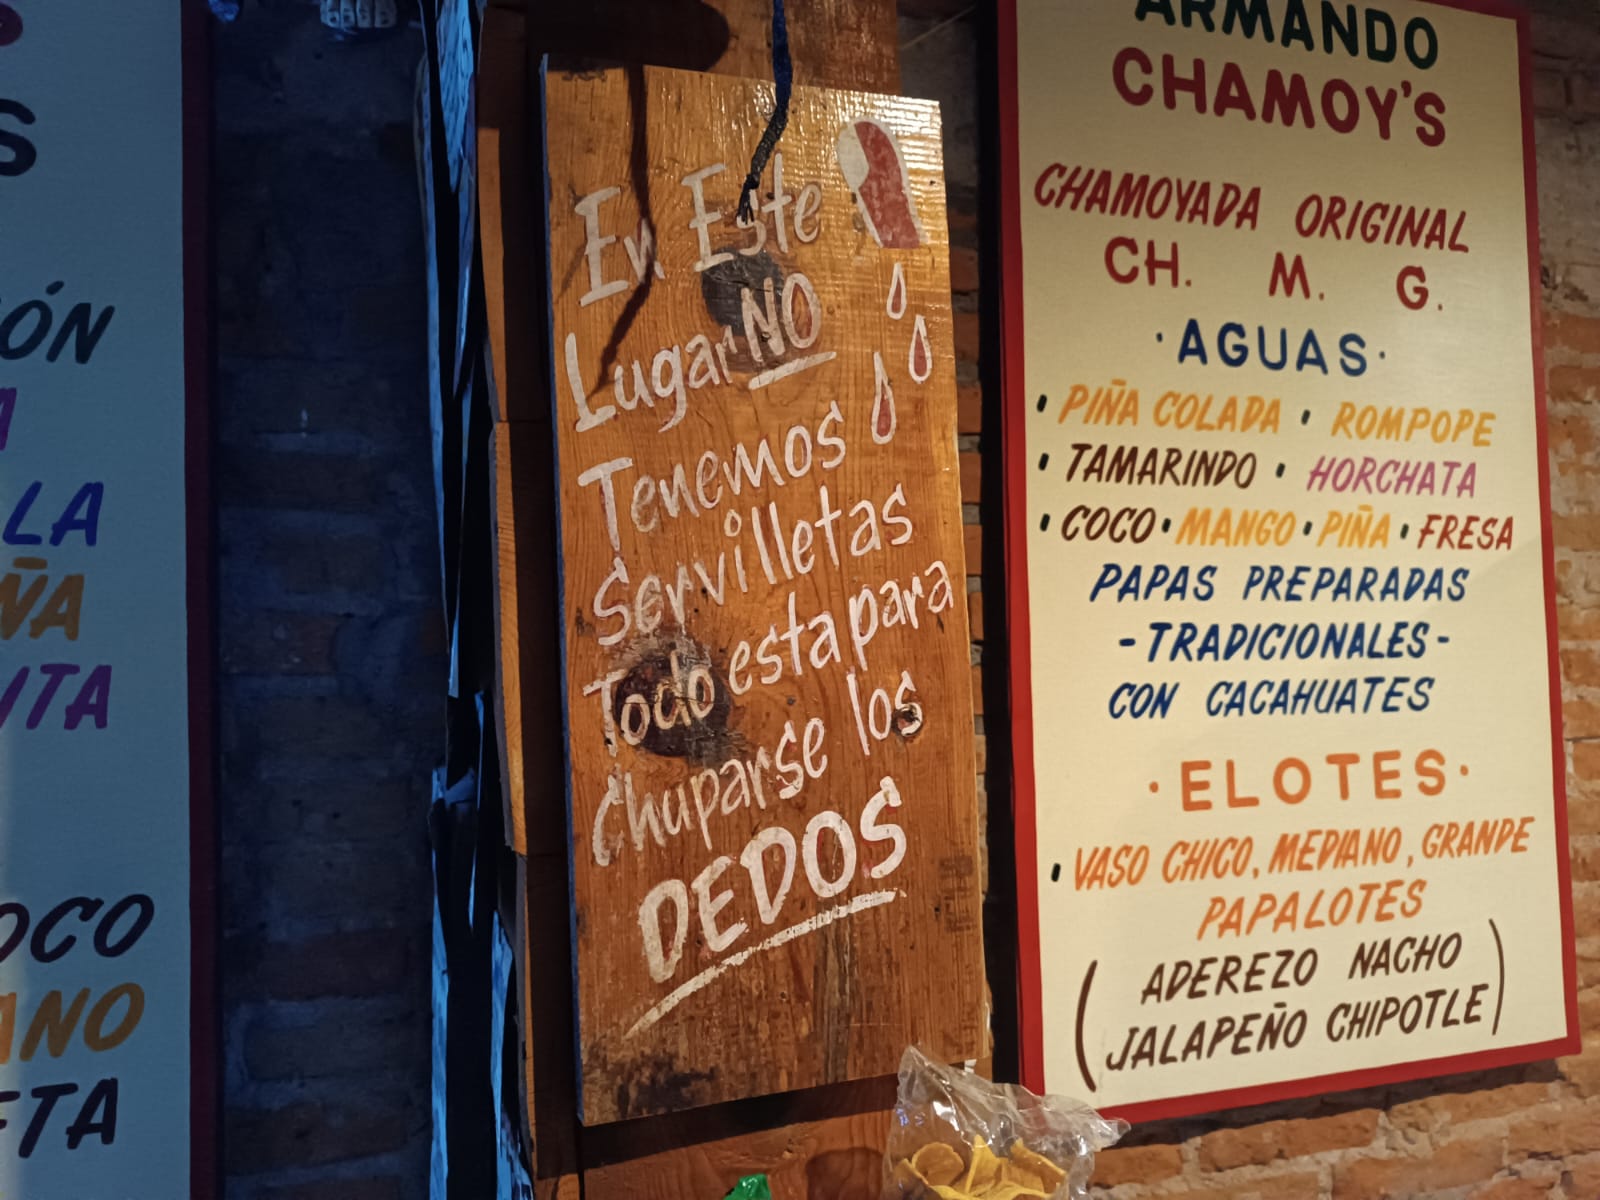 En Este
Lugar NO
Tenemos
servilletas
Todo esta para
Chuparse los
DEDOS
ARMANDO
CHAMOY'S
CHAMOYADA ORIGINAL
CH. M. G.
· AGUAS ·
· PIÑA COLADA · ROMPOPE
· TAMARINDO · HORCHATA
· COCO · MANGO · PIÑA · FRESA
PAPAS PREPARADAS
- TRADICIONALES -
CON CACAHUATES
· ELOTES ·
· VASO CHICO, MEDIANO, GRANDE
PAPALOTES
( ADEREZO NACHO
JALAPEÑO CHIPOTLE )